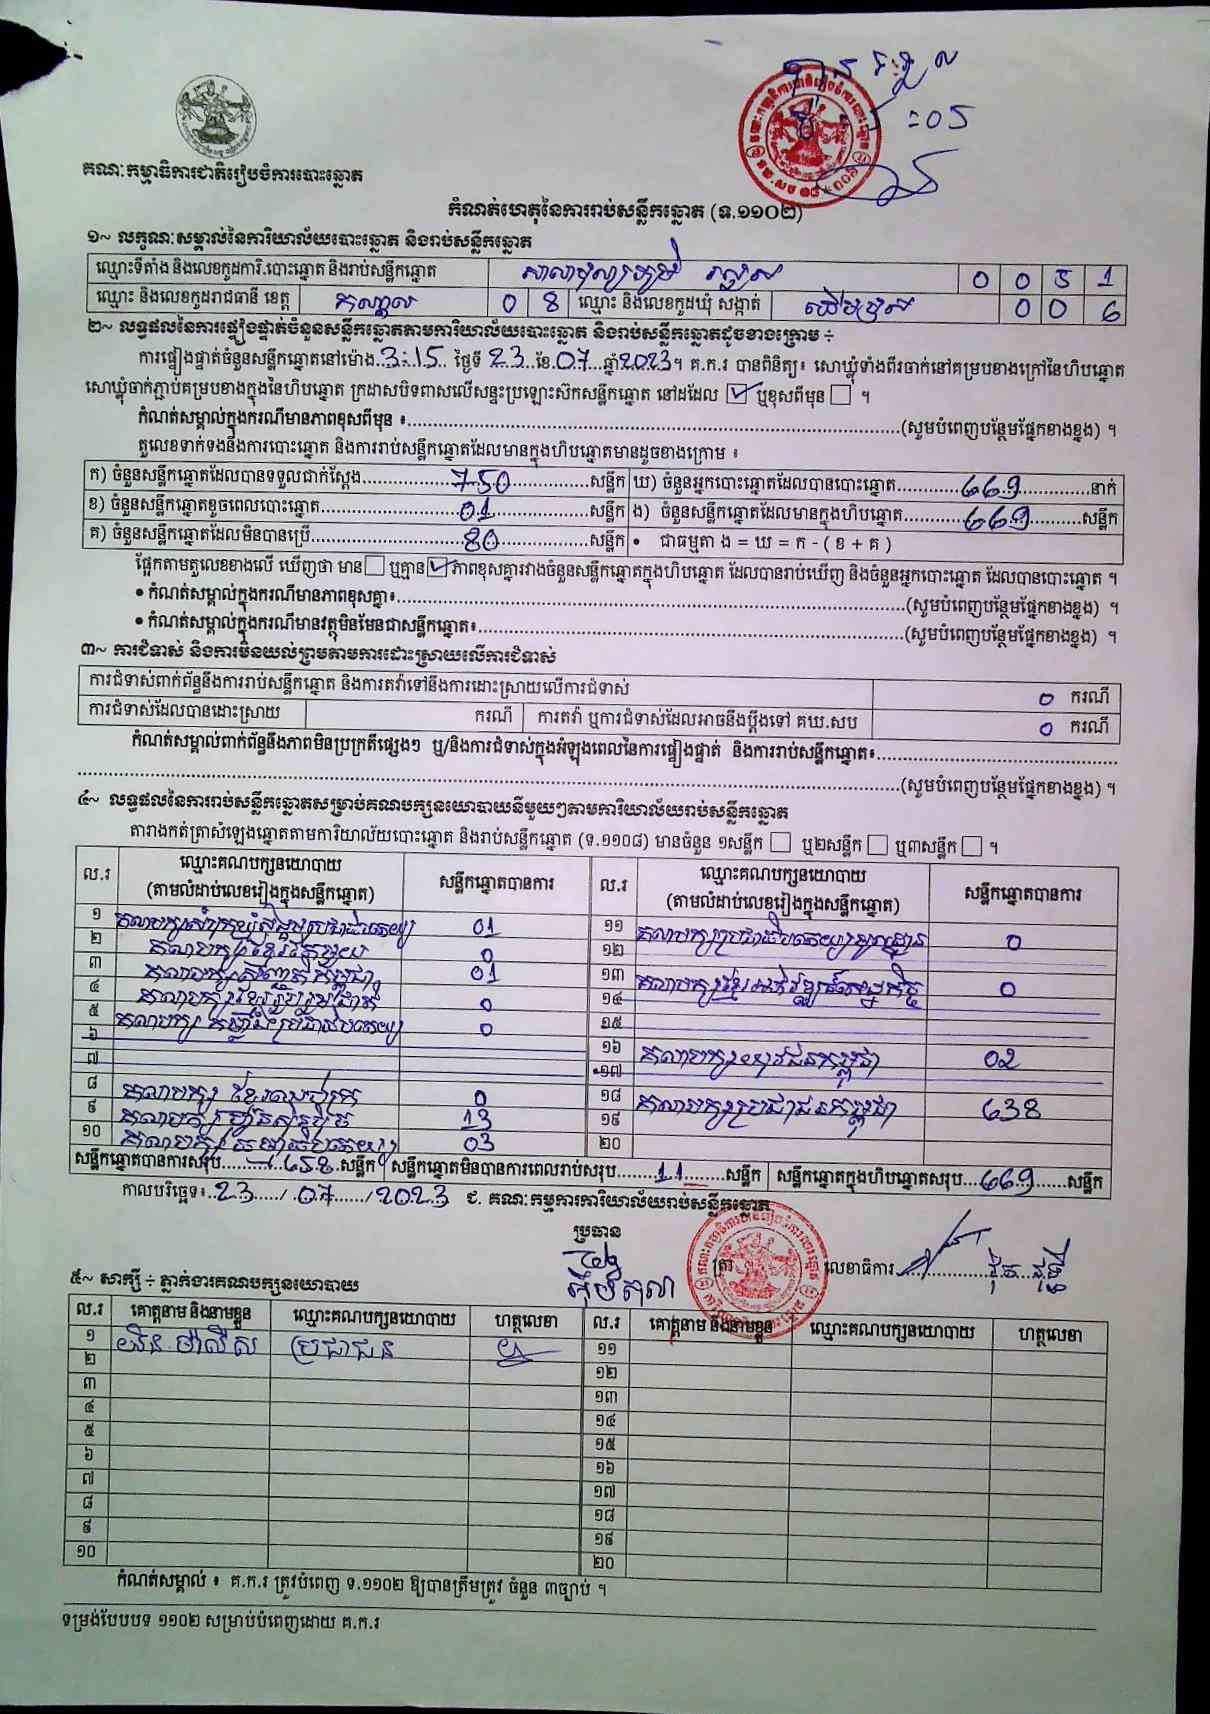 គណៈកម្មាធិការជាតិរៀបចំការបោះឆ្នោត
:05
កំណត់ហេតុនៃការរាប់សន្លឹកឆ្នោត (ទ.១១០២)
១~ លក្ខណៈសម្គាល់នៃការិយាល័យបោះឆ្នោត និងរាប់សន្លឹកឆ្នោត
ឈ្មោះទីតាំង និងលេខកូដការិ.បោះឆ្នោត និងរាប់សន្លឹកឆ្នោត 0 0 5 1
ឈ្មោះ និងលេខកូដរាជធានី ខេត្ត កណ្តាល 0 8 ឈ្មោះ និងលេខកូដឃុំ សង្កាត់ 0 0 6
២~ លទ្ធផលនៃការផ្ទៀងផ្ទាត់ចំនួនសន្លឹកឆ្នោតតាមការិយាល័យបោះឆ្នោត និងរាប់សន្លឹកឆ្នោតដូចខាងក្រោម ÷
ការផ្ទៀងផ្ទាត់ចំនួនសន្លឹកឆ្នោតនៅម៉ោង..3:15.. ថ្ងៃទី 23 ខែ.07 ឆ្នាំ2023។ គ.ក.រ បានពិនិត្យ៖ សោឃ្លុំទាំងពីរចាក់នៅគម្របខាងក្រៅនៃហិបឆ្នោត
សោឃ្លុំចាក់ភ្ជាប់គម្របខាងក្នុងនៃហិបឆ្នោត ក្រដាសបិទពាសលើសន្ទះប្រឡោះស៊កសន្លឹកឆ្នោត នៅដដែល ☑ ឬខុសពីមុន ☐ ។
កំណត់សម្គាល់ក្នុងករណីមានភាពខុសពីមុន ៖..........(សូមបំពេញបន្ថែមផ្នែកខាងខ្នង) ។
តួលេខទាក់ទងនឹងការបោះឆ្នោត និងការរាប់សន្លឹកឆ្នោតដែលមានក្នុងហិបឆ្នោតមានដូចខាងក្រោម ៖
ក) ចំនួនសន្លឹកឆ្នោតដែលបានទទួលជាក់ស្តែង.....750.....សន្លឹក ឃ) ចំនួនអ្នកបោះឆ្នោតដែលបានបោះឆ្នោត.....669.....នាក់
ខ) ចំនួនសន្លឹកឆ្នោតខូចពេលបោះឆ្នោត.....01.....សន្លឹក ង) ចំនួនសន្លឹកឆ្នោតដែលមានក្នុងហិបឆ្នោត.....669.....សន្លឹក
គ) ចំនួនសន្លឹកឆ្នោតដែលមិនបានប្រើ.....80.....សន្លឹក • ជាធម្មតា ង = ឃ = ក - ( ខ + គ )
ផ្អែកតាមតួលេខខាងលើ ឃើញថា មាន ☐ ឬគ្មាន ☑ ភាពខុសគ្នារវាងចំនួនសន្លឹកឆ្នោតក្នុងហិបឆ្នោត ដែលបានរាប់ឃើញ និងចំនួនអ្នកបោះឆ្នោត ដែលបានបោះឆ្នោត ។
• កំណត់សម្គាល់ក្នុងករណីមានភាពខុសគ្នា៖..........(សូមបំពេញបន្ថែមផ្នែកខាងខ្នង) ។
• កំណត់សម្គាល់ក្នុងករណីមានវត្ថុមិនមែនជាសន្លឹកឆ្នោត៖..........(សូមបំពេញបន្ថែមផ្នែកខាងខ្នង) ។
៣~ ការជំទាស់ និងការមិនយល់ព្រមតាមការដោះស្រាយលើការជំទាស់
ការជំទាស់ពាក់ព័ន្ធនឹងការរាប់សន្លឹកឆ្នោត និងការតវ៉ាទៅនឹងការដោះស្រាយលើការជំទាស់ 0 ករណី
ការជំទាស់ដែលបានដោះស្រាយ ករណី ការតវ៉ា ឬការជំទាស់ដែលអាចនឹងប្តឹងទៅ គឃ.សប 0 ករណី
កំណត់សម្គាល់ពាក់ព័ន្ធនឹងភាពមិនប្រក្រតីផ្សេងៗ ឬ/និងការជំទាស់ក្នុងអំឡុងពេលនៃការផ្ទៀងផ្ទាត់ និងការរាប់សន្លឹកឆ្នោត៖..........
..........(សូមបំពេញបន្ថែមផ្នែកខាងខ្នង) ។
៤~ លទ្ធផលនៃការរាប់សន្លឹកឆ្នោតសម្រាប់គណបក្សនយោបាយនីមួយៗតាមការិយាល័យរាប់សន្លឹកឆ្នោត
តារាងកត់ត្រាសំឡេងឆ្នោតតាមការិយាល័យបោះឆ្នោត និងរាប់សន្លឹកឆ្នោត (ទ.១១០៨) មានចំនួន ១សន្លឹក ☐ ឬ២សន្លឹក ☐ ឬ៣សន្លឹក ☐ ។
ល.រ ឈ្មោះគណបក្សនយោបាយ (តាមលំដាប់លេខរៀងក្នុងសន្លឹកឆ្នោត) សន្លឹកឆ្នោតបានការ ល.រ ឈ្មោះគណបក្សនយោបាយ (តាមលំដាប់លេខរៀងក្នុងសន្លឹកឆ្នោត) សន្លឹកឆ្នោតបានការ
១ គណបក្សសំបុកឃ្មុំសង្គមប្រជាធិបតេយ្យ 01 ១១ គណបក្សប្រជាធិបតេយ្យមូលដ្ឋាន 0
២ គណបក្សខ្មែរតែមួយ 0 ១២
៣ គណបក្សស្ថាបនាកម្ពុជា 01 ១៣ 0
៤ គណបក្សខ្មែររួបរួមជាតិ 0 ១៤
៥ គណបក្ស កម្លាំងប្រជាធិបតេយ្យ 0 ១៥
៦ ១៦ គណបក្សយុវជនកម្ពុជា 02
៧ ១៧
៨ គណបក្ស 0 ១៨ គណបក្សប្រជាជនកម្ពុជា 638
៩ គណបក្សហ៊្វុនស៊ិនប៉ិច 13 ១៩
១០ គណបក្ស ធម្មាធិបតេយ្យ 03 ២០
សន្លឹកឆ្នោតបានការសរុប.....658.សន្លឹក សន្លឹកឆ្នោតមិនបានការពេលរាប់សរុប.....11.....សន្លឹក សន្លឹកឆ្នោតក្នុងហិបឆ្នោតសរុប...669.....សន្លឹក
កាលបរិច្ឆេទ៖..23...../.07....../2023 ជ. គណៈកម្មការការិយាល័យរាប់សន្លឹកឆ្នោត
ប្រធាន
ត្រា លេខាធិការ
៥~ សាក្សី ÷ ភ្នាក់ងារគណបក្សនយោបាយ
ល.រ គោត្តនាម និងនាមខ្លួន ឈ្មោះគណបក្សនយោបាយ ហត្ថលេខា ល.រ គោត្តនាម និងនាមខ្លួន ឈ្មោះគណបក្សនយោបាយ ហត្ថលេខា
១ ប្រជាជន ១១
២ ១២
៣ ១៣
៤ ១៤
៥ ១៥
៦ ១៦
៧ ១៧
៨ ១៨
៩ ១៩
១០ ២០
កំណត់សម្គាល់ ៖ គ.ក.រ ត្រូវបំពេញ ទ.១១០២ ឱ្យបានត្រឹមត្រូវ ចំនួន ៣ច្បាប់ ។
ទម្រង់បែបបទ ១១០២ សម្រាប់បំពេញដោយ គ.ក.រ